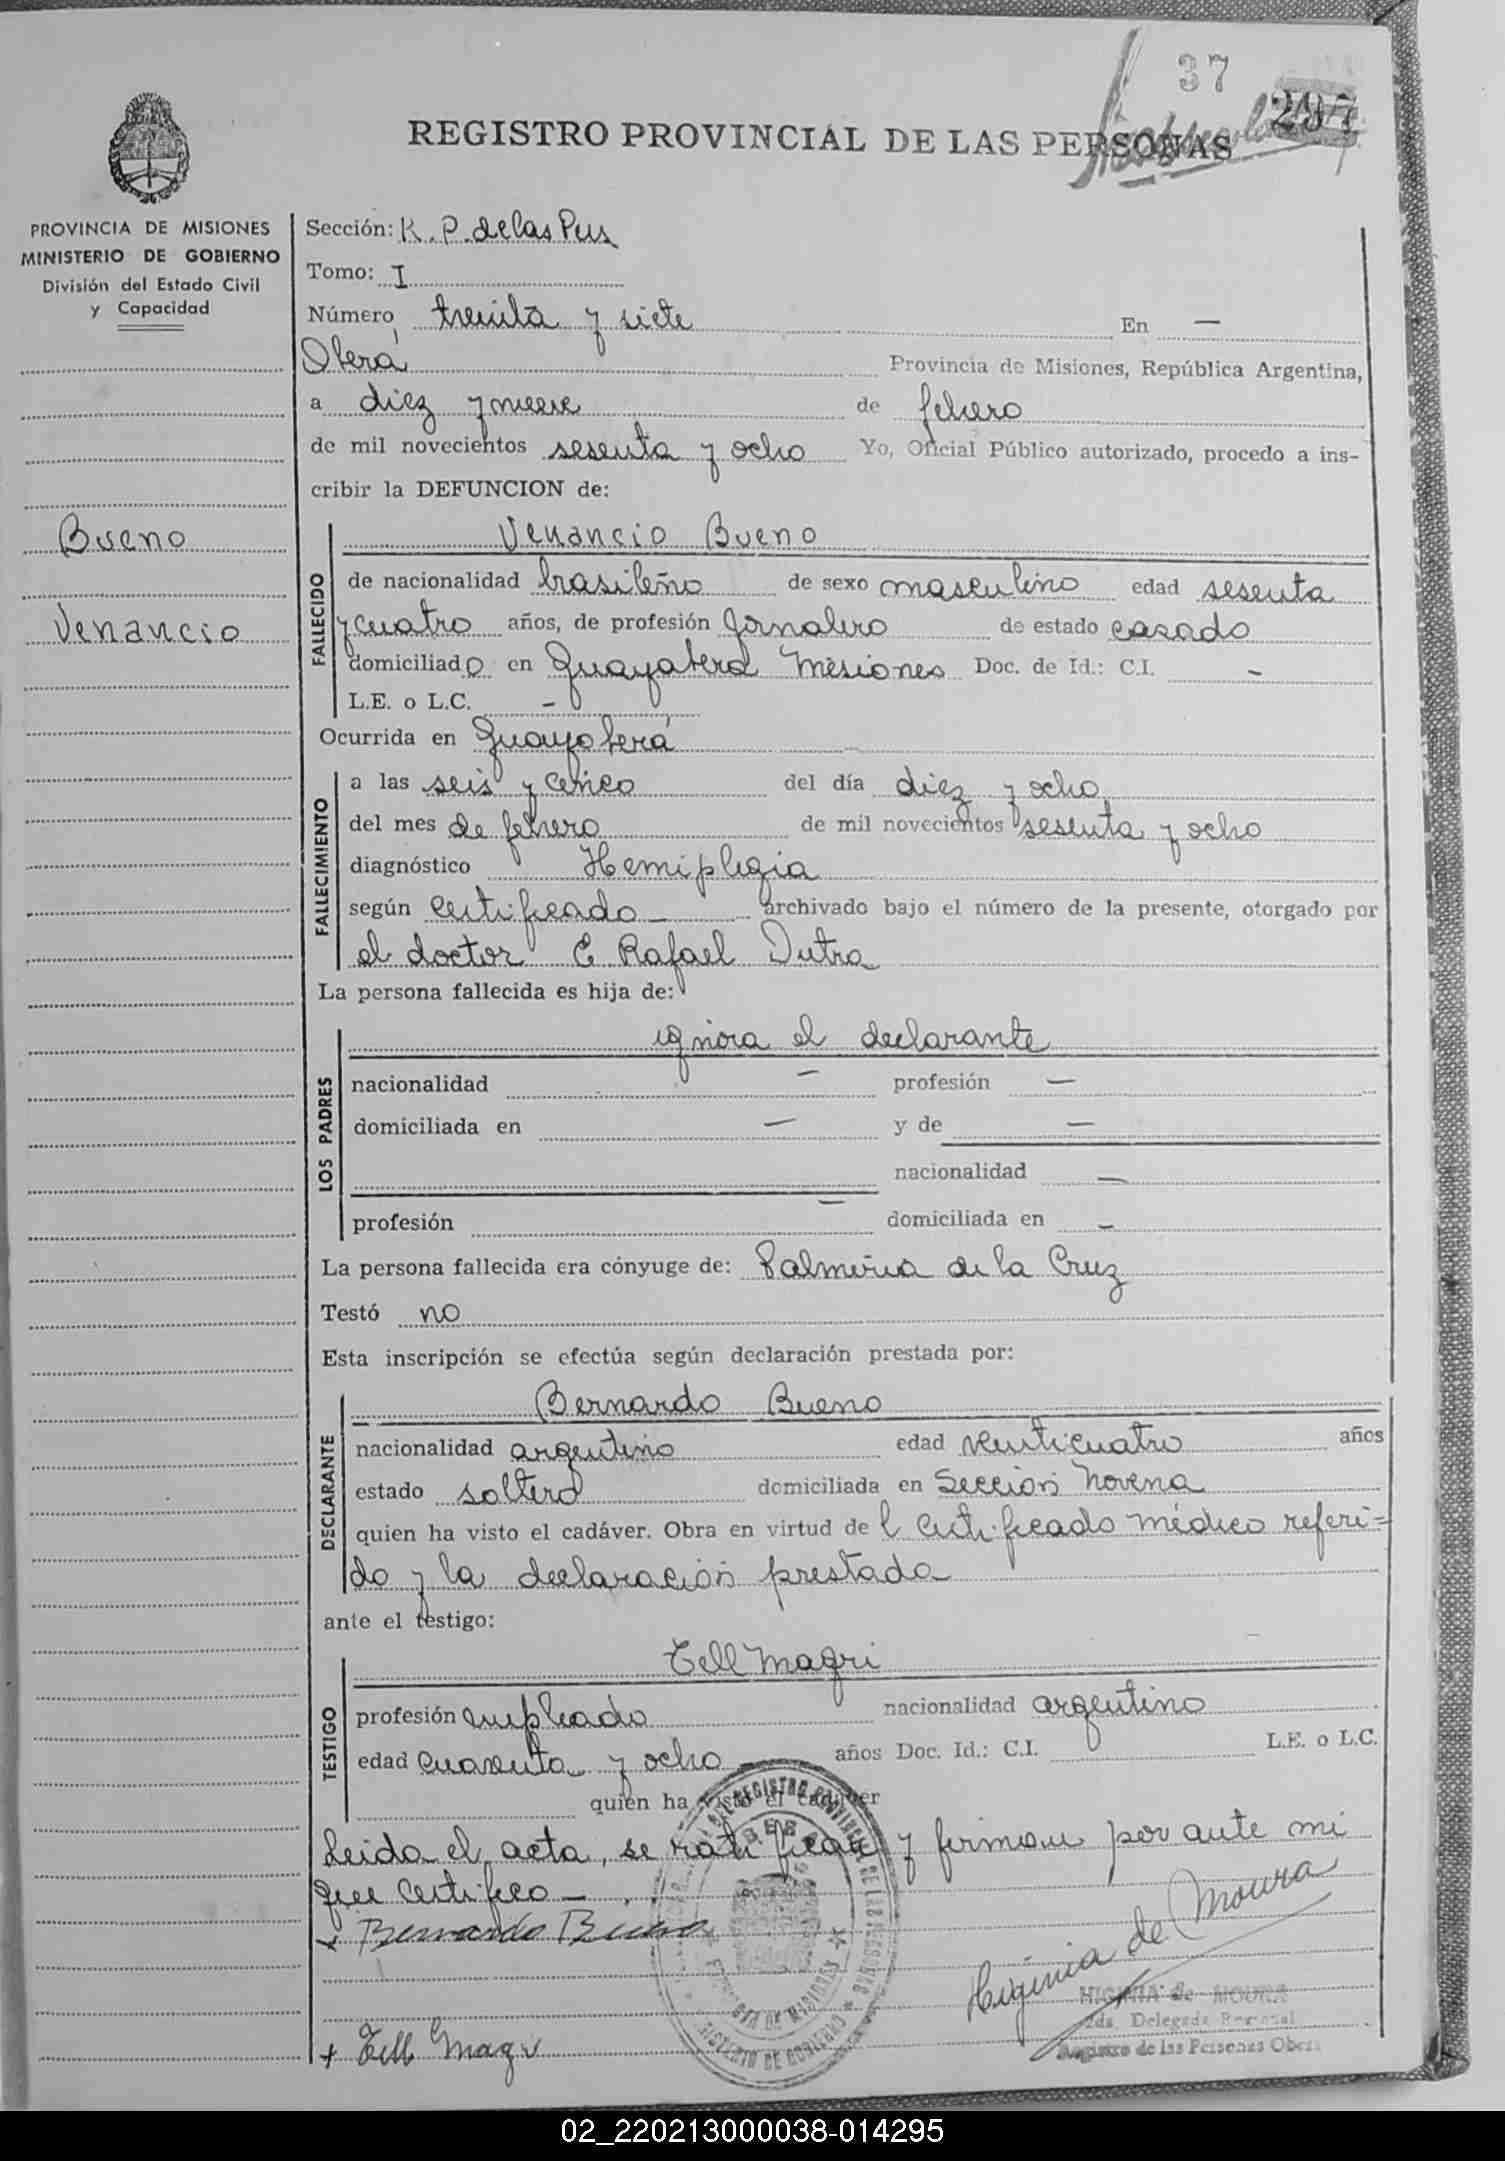 37
297
REGISTRO PROVINCIAL DE LAS PERSONAS
PROVINCIA DE MISIONES
MINISTERIO DE GOBIERNO
División del Estado Civil
y Capacidad
Bueno
Venancio
Sección: R. P. de las Pers
Tomo: I
Número treinta y siete En —
Oberá Provincia de Misiones, República Argentina,
a diez y nueve de febrero
de mil novecientos sesenta y ocho Yo, Oficial Público autorizado, procedo a ins-
cribir la DEFUNCION de:
FALLECIDO
Venancio Bueno
de nacionalidad brasileño de sexo masculino edad sesenta
y cuatro años, de profesión jornalero de estado casado
domiciliado en Guayaberá Misiones Doc. de Id.: C.I. -
L.E. o L.C. -
Ocurrida en Guayaberá
FALLECIMIENTO
a las seis y cinco del día diez y ocho
del mes de febrero de mil novecientos sesenta y ocho
diagnóstico Hemiplegia
según certificado — archivado bajo el número de la presente, otorgado por
el doctor E Rafael Dutra
La persona fallecida es hija de:
LOS PADRES
ignora el declarante
nacionalidad — profesión —
domiciliada en — y de —
nacionalidad —
profesión — domiciliada en —
La persona fallecida era cónyuge de: Palmiria de la Cruz
Testó no
Esta inscripción se efectúa según declaración prestada por:
DECLARANTE
Bernardo Bueno
nacionalidad argentino edad veinticuatro años
estado soltero domiciliada en Sección Novena
quien ha visto el cadáver. Obra en virtud de l certificado médico referi=
do y la declaración prestada
ante el testigo:
TESTIGO
Tell Magri
profesión empleado nacionalidad argentino
edad cuarenta y ocho años Doc. Id.: C.I. L.E. o L.C.
quien ha visto el cadáver
Leida el acta, se ratifican y firman por ante mi
que certifico —
Bernardo Bueno
Higinia de Moura
HIGINIA de MOURA
2da. Delegada Regional
Registro de las Personas Oberá
+ Tell Magri
REGISTRO PROVINCIAL DE LAS PERSONAS
MINISTERIO DE GOBIERNO
02_220213000038-014295